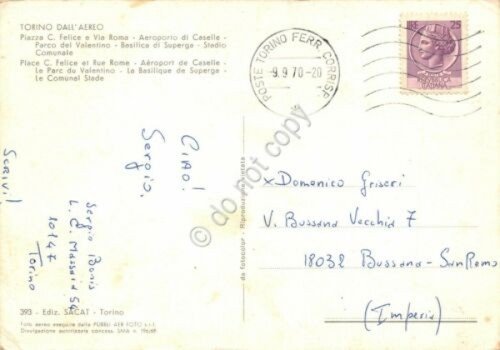 TORINO DALL'AEREO
Piazza C. Felice e Via Roma - Aeroporto di Caselle -
Parco del Valentino - Basilica di Superga - Stadio
Comunale
Place C. Felice et Rue Rome - Aéroport de Caselle -
Le Parc du Valentino - La Basilique de Superga -
Le Comunal Stade
POSTE TORINO FERR. CORRISP.
9.9.70-20
LIRE 25
ITALIANA
CIAO!
Sergio,
Sergio Bonis
L. C. Massaia 54
10147
Torino
SCRIVI!
x Domenico Griseri
V. Bussana Vecchia 7
18032 Bussana - SanRemo
(Imperia)
da fotocolor - Riproduzione vietata
do not copy
393 - Ediz. SACAT - Torino
Foto aerea eseguita dalla PUBBLI-AER FOTO
Divulgazione autorizzata concess. SMA n.